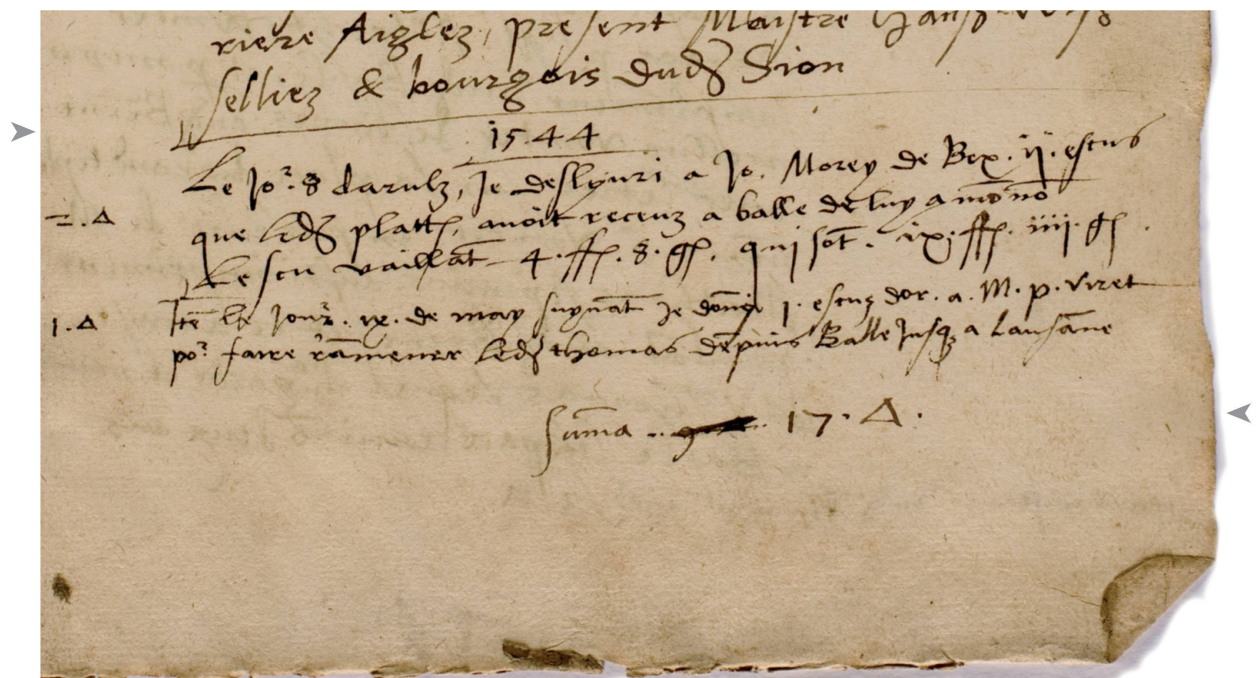 riere Aiglez, present Maistre Hans
selliez & bourgois dud Sion
1544
Le Jor. 8 darulz, Je deslyuri a Jo. Morey de Bex. ij. escus
=. Δ
que led platt, auoit receuz a balle de luy a mōno
Lescu vaillāt 4. ff. 8. gſ. qui sōt. ix. ff. iiij. gſ.
1. Δ
Itē le Jour. ix. de may suyuāt Je donny j. escuz dor. a. M. p. viret
por faire rāmener led thomas depuis Balle Jusq a Lausāne
Sūma 17. Δ.